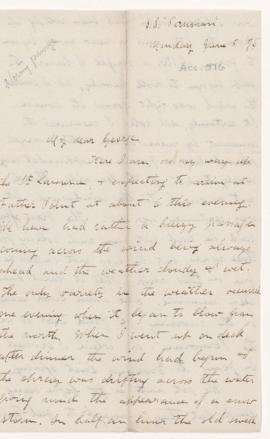 S.S. "Peruvian"
Sunday June 5 '79
Acc. 886
Stormy passage
My dear George
Here I am, on my way up
the St Lawrence & expecting to arrive at
Father Point at about 6 this evening.
We have had rather a breezy passage
coming across the wind being always
ahead and the weather cloudy & wet.
The only variety in the weather occurred
one evening when it began to blow from
the north. When I went up on deck
after dinner the wind had begun &
the spray was drifting across the water
giving much the appearance of a snow
storm. In half an hour the old swell